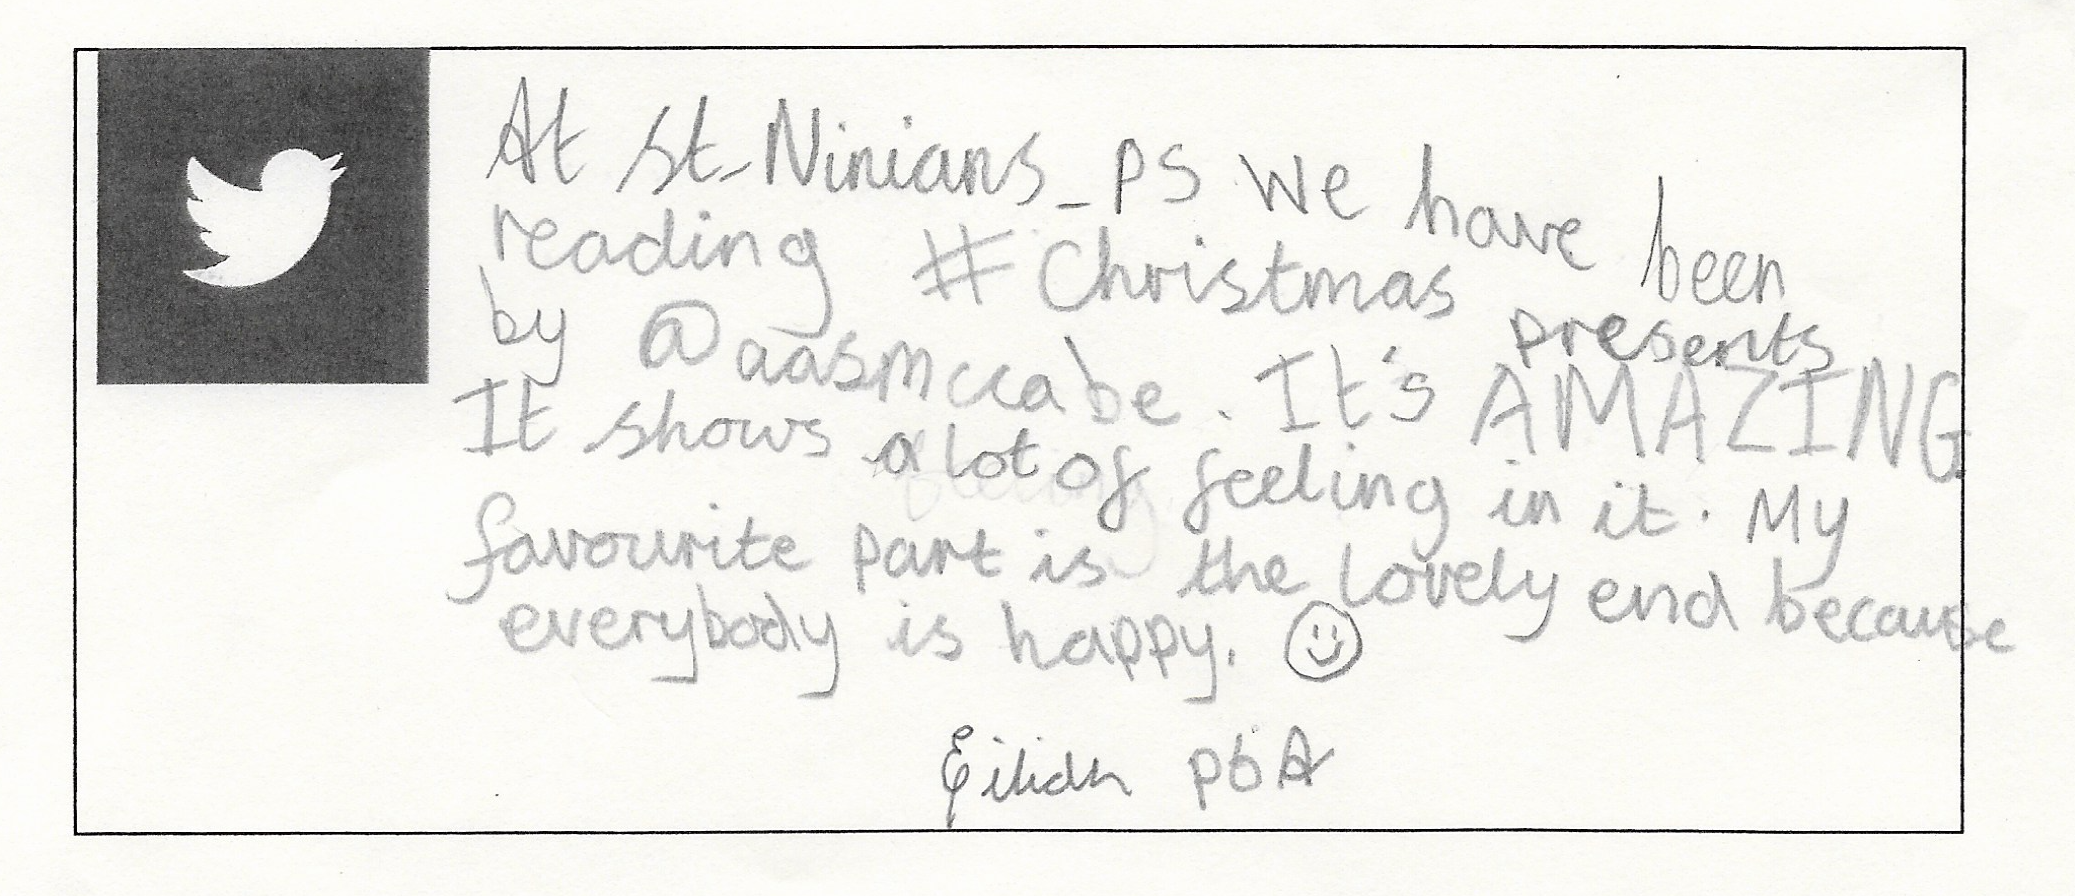 At St-Ninians_PS we have been
reading #Christmas presents
by @aasmccabe. It's AMAZING
It shows a lot of feeling in it. My
favourite part is the lovely end because
everybody is happy. ☺
Eilidh P6A